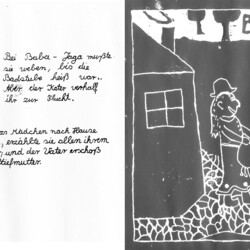 Bei Baba-Jaga mußte
sie weben, bis die
Badstube heiß war.
Aber der Kater verhalf
ihr zur Flucht.
as Mädchen nach Hause
, erzählte sie allen ihrem
und der Vater erschoß
tiefmutter.